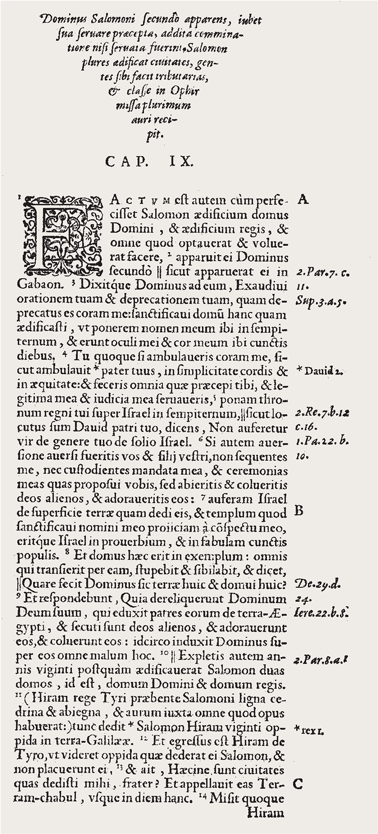 Dominus Salomoni secundò apparens, iubet
sua seruare præcepta, addita commina-
tiore nisi seruata fuerint. Salomon
plures ædificat ciuitates, gen-
tes sibi facit tributarias,
& classe in Ophir
missa plurimum
auri reci-
pit.
CAP. IX.
1 FACTVM est autem cùm perfe- A
cisset Salomon ædificium domus
Domini, & ædificium regis, &
omne quod optauerat & volue-
rat facere, 2 apparuit ei Dominus
secundò || sicut apparuerat ei in 2.Par.7.c.
Gabaon. 3 Dixitque Dominus ad eum, Exaudiui 11.
orationem tuam & deprecationem tuam, quam de- Sup.3.a.5.
precatus es coram me: sanctificaui domũ hanc quam
ædificasti, vt ponerem nomen meum ibi in sempi-
ternum, & erunt oculi mei & cor meum ibi cunctis
diebus. 4 Tu quoque si ambulaueris coram me, si-
cut ambulauit * pater tuus, in simplicitate cordis & * Dauid 2.
in æquitate: & feceris omnia quæ præcepi tibi, & le-
gitima mea & iudicia mea seruaueris, 5 ponam thro-
num regni tui super Israel in sempiternum, || sicut lo- 2.Re.7.b.12
cutus sum Dauid patri tuo, dicens, Non auferetur c.16.
vir de genere tuo de solio Israel. 6 Si autem auer- 1.Pa.22.b.
sione auersi fueritis vos & filij vestri, non sequentes 10.
me, nec custodientes mandata mea, & ceremonias
meas quas proposui vobis, sed abieritis & colueritis
deos alienos, & adoraueritis eos: 7 auferam Israel
de superficie terræ quam dedi eis, & templum quod B
sanctificaui nomini meo proiiciam à cõspectu meo,
eritque Israel in prouerbium, & in fabulam cunctis
populis. 8 Et domus hæc erit in exemplum: omnis
qui transierit per eam, stupebit & sibilabit, & dicet,
||Quare fecit Dominus sic terræ huic & domui huic? De.29.d.
9 Et respondebunt, Quia dereliquerunt Dominum 24.
Deum suum, qui eduxit patres eorum de terra-Æ- Iere.22.b.8.
gypti, & secuti sunt deos alienos, & adorauerunt
eos, & coluerunt eos: idcirco induxit Dominus su-
per eos omne malum hoc. 10 || Expletis autem an- 2.Par.8.a.1
nis viginti postquàm ædificauerat Salomon duas
domos, id est, domum Domini & domum regis.
11 (Hiram rege Tyri præbente Salomoni ligna ce-
drina & abiegna, & aurum iuxta omne quod opus
habuerat:) tunc dedit * Salomon Hiram viginti op- * rex 1.
pida in terra-Galilææ. 12 Et egressus est Hiram de
Tyro, vt videret oppida quæ dederat ei Salomon, &
non placuerunt ei, 13 & ait, Hæcine sunt ciuitates
quas dedisti mihi, frater? Et appellauit eas Ter- C
ram-chabul, vsque in diem hanc. 14 Misit quoque
Hiram